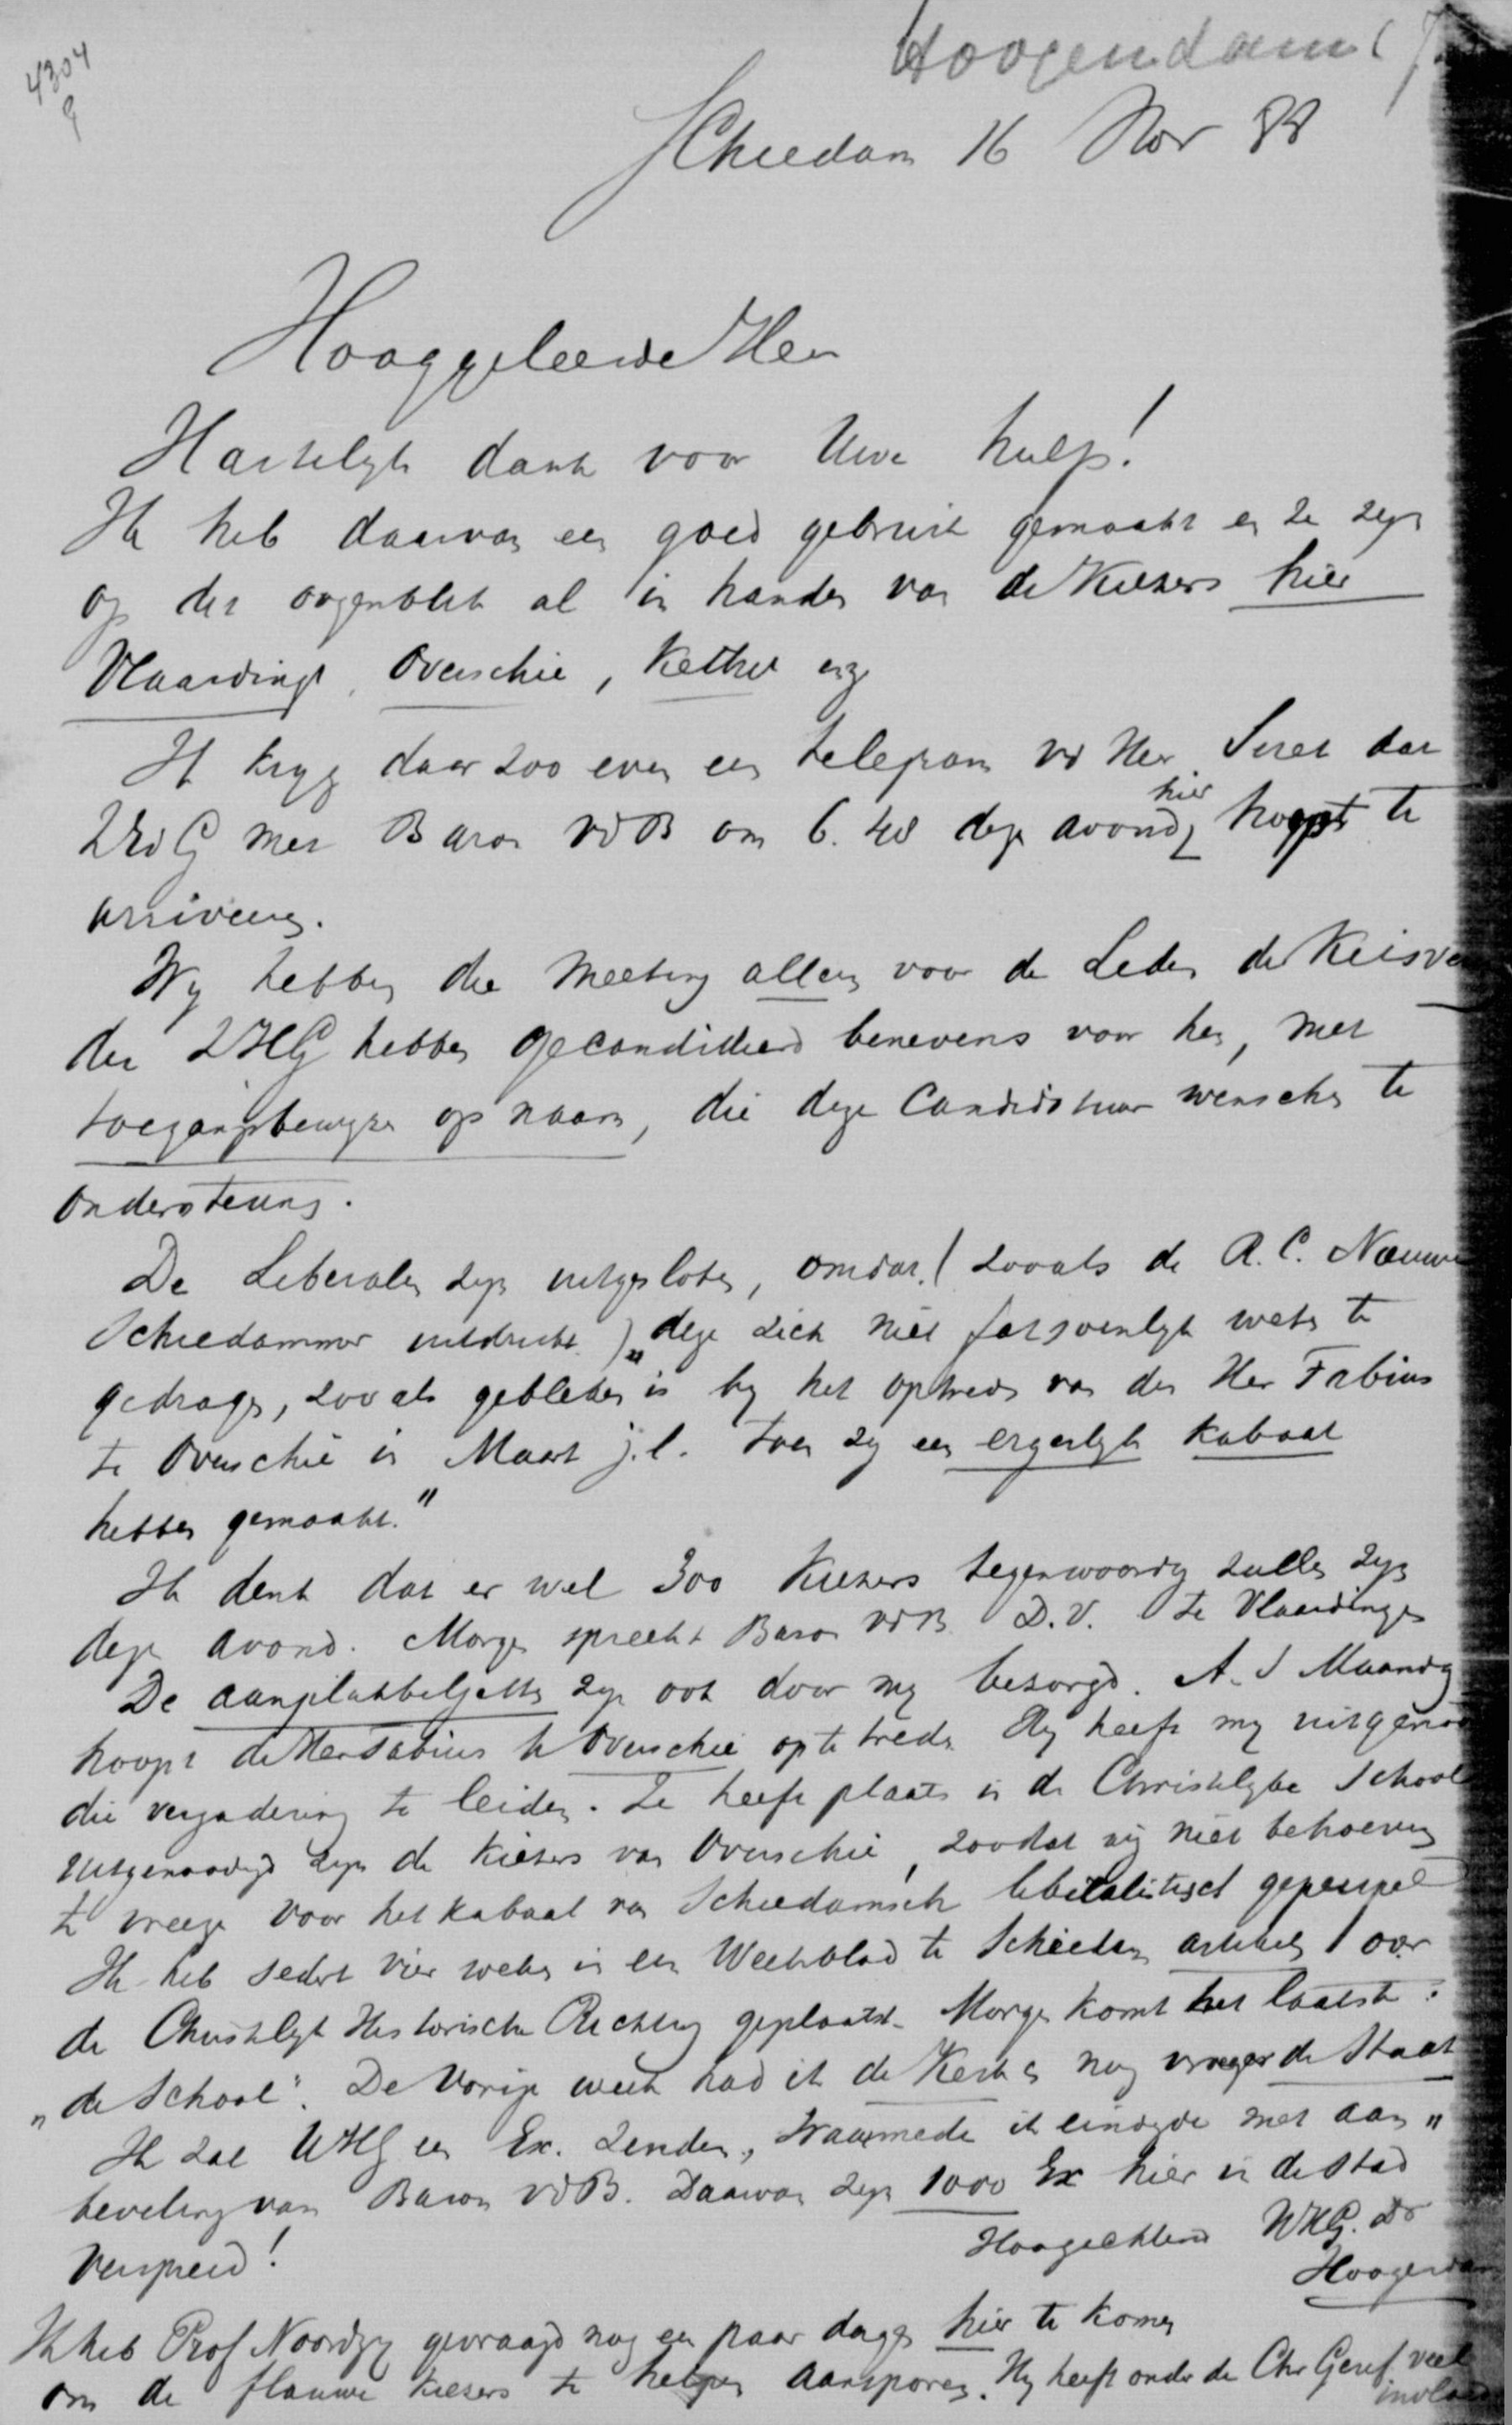 4304
9
Hoogendam (J.
Schiedam 16 Nov 88
Hooggeleerde Heer
Hartelyk dank voor Uwe hulp!
Ik heb daarvan een goed gebruik gemaakt en ze zyn
op dit oogenblik al in handen van de Kiezers hier
Vlaardingen, Overschie, Kethel enz
Ik kryg daar zoo even een telegram vd Heer Seret dat
ZEdG met Baron vdB om 6.48 deze avond hier hoopt te
arriveeren.
Wy hebben die Meeting alleen voor de Leden der Kiesver
die ZHG hebben gecandideerd benevens voor hen, met
toegangsbewyzen op naam, die deze Candidatuur wenschen te
ondersteunen.
De Liberalen zyn uitgesloten, omdat (zooals de R.C. Nieuwe
Schiedammer uitdrukt) „deze zich niet fatsoenlyk weten te
gedragen, zooals gebleken is by het optreden van den Heer Fabius
te Overschie in Maart j.l. toen zy een ergerlyk kabaal
hebben gemaakt."
Ik denk dat er wel 300 Kiezers tegenwoordig zullen zyn
deze avond. Morgen spreekt Baron vdB D.V. te Vlaardingen
De aanplakbiljetten zyn ook door my bezorgd. A.S Maandag
hoopt de Heer Fabius te Overschie op te treden Hy heeft my uitgenoo
die vergadering te leiden. Ze heeft plaats in de Christelyke School
Uitgenoodigd zyn de Kiezers van Overschie, zoodat wij niet behoeven
te vreezen voor het kabaal van Schiedamsch liberalistisch gepeupel
Ik heb sedert vier weken in een Weekblad te Schiedam artikels over
de Christelyk Historische Richting geplaatst. Morgen komt het laatste:
„de School". De vorige week had ik de Kerk en nog vroeger de Staat
Ik zal UHG een Ex. zenden, waarmede ik eindigde met aan„
beveling van Baron vdB. Daarvan zyn 1000 Ex hier in de stad
Verspreid!
Hoogachtend UHG. Dr
Hoogendam
Ik heb Prof Noordzy gevraagd nog een paar dagen hier te komen
om de flauwe kiezers te helpen aansporen. Hy heeft onder de Chr Geref veel
invloed